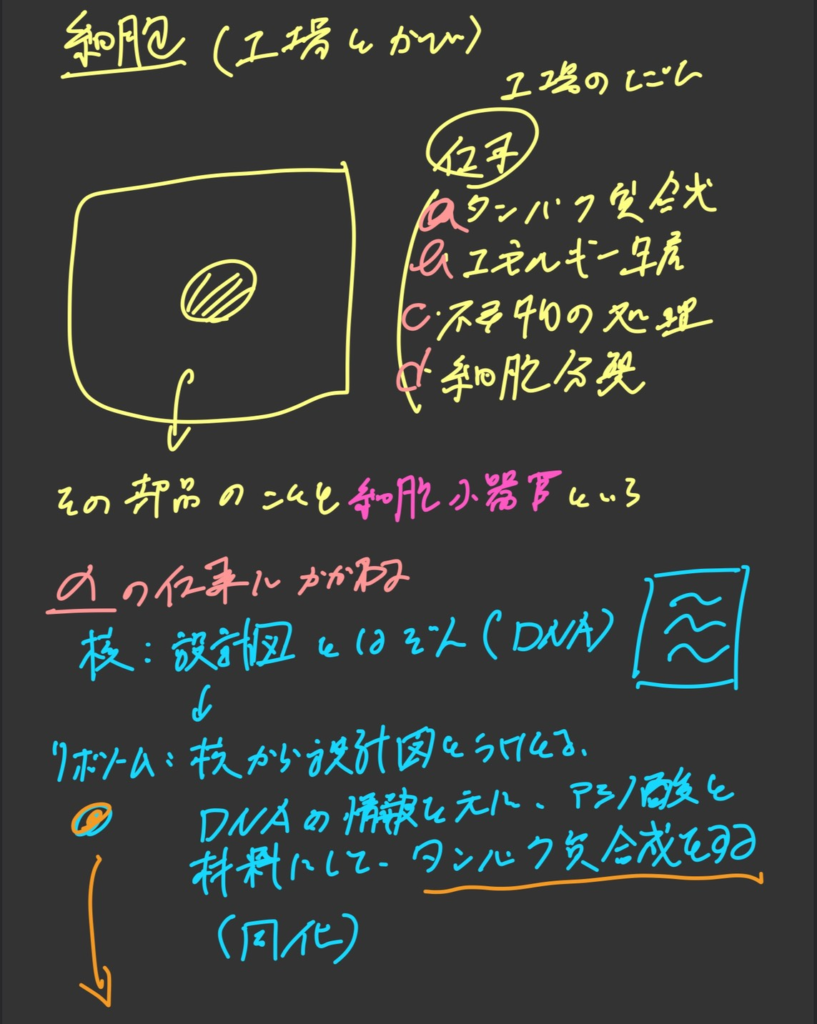 細胞（工場とかび）
工場のしごと
仕事
a タンパク質合成
b エネルギー生産
c・不要物の処理
d・細胞分裂
その部品のことを細胞小器官という
aの仕事にかかわる
核：設計図をほぞん（DNA）
リボソーム：核から設計図をうけとる、
DNAの情報を元に、アミノ酸を
材料にして、タンパク質合成をする
（同化）